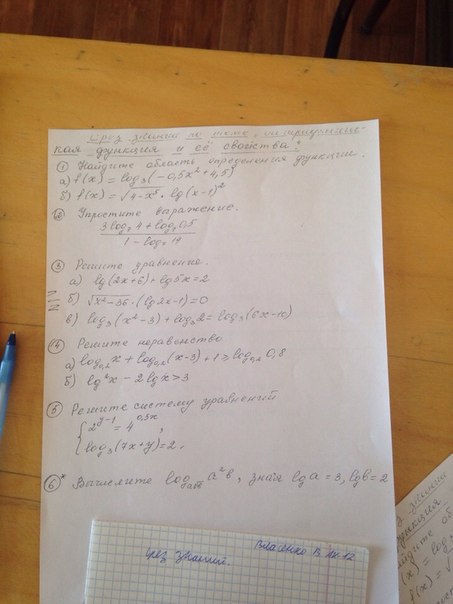 Срез знаний по теме „Логарифмичес-
кая функция и её свойства".
① Найдите область определения функции.
а) f(x) = log₃(-0,5x² + 4,5)
б) f(x) = √(4-x²) · lg(x-1)²
② Упростите выражение.
(3log₇4 + log₇0,5) / (1 - log₇14)
③ Решите уравнение.
а) lg(2x+6) + lg5x = 2
б) √(x²-36) · (lg2x-1) = 0
в) log₃(x²-3) + log₃2 = log₃(6x-10)
④ Решите неравенство
б) lg²x - 2lgx > 3
⑤ Решите систему уравнений
{2^(y-1) = 4^(0,5x),
log₃(7x+y) = 2.
⑥* a²b, зная lg a = 3, lg b = 2
Срез знаний.
Власенко В